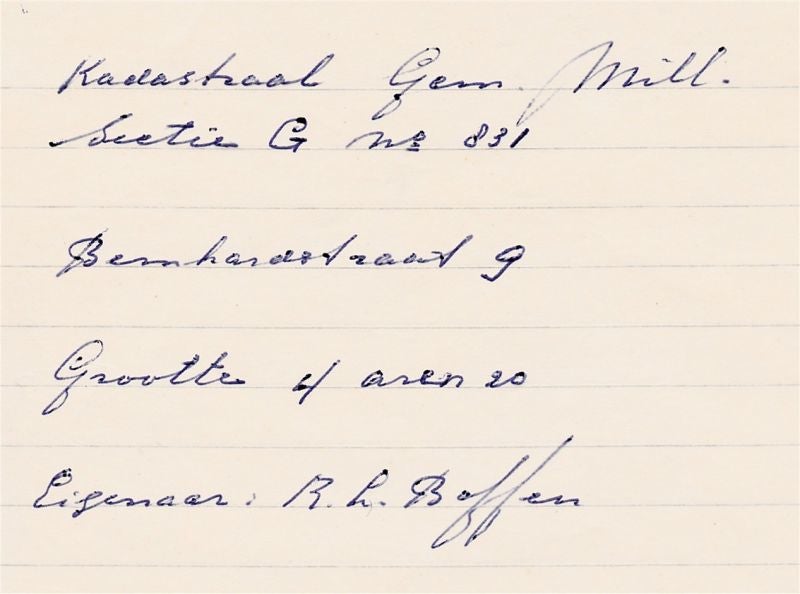 Kadastraal Gem. Mill.
Sectie G No 831
Bernhardstraat 9
Grootte 4 aren 20
Eigenaar: R. L. Boffen